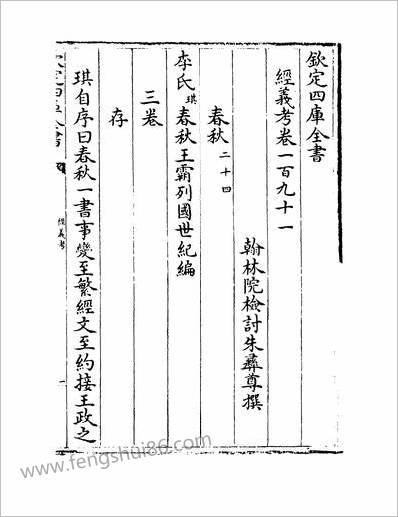 欽定四庫全書
經義考卷一百九十一
翰林院檢討朱彝尊撰
春秋二十四
李氏琪春秋王霸列國世紀編
三卷
存
琪自序曰春秋一書事變至繁經文至約接王政之
經義考
一
www.fengshui86.com